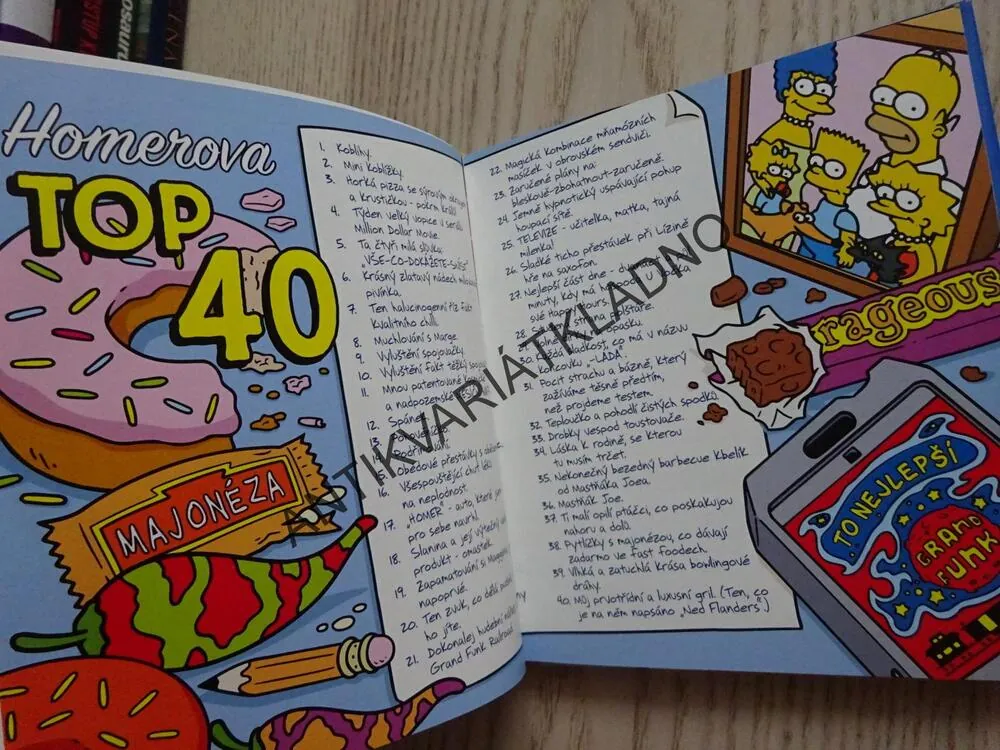 Homerova
TOP
40
MAJONÉZA
1. Koblihy.
2. Mini Kobližky.
3. Horká pizza se sýrovým
a krustičkou - pokrm králů
4. Týden velký vopice v seriálu
Million Dollar Movie.
5. Ta čtyři milá slovíčka:
„VŠE-CO-DOKÁŽETE-SNÍST“
6. Krásný zlatavý nádech
pivínka.
7. Ten halucinogenní říz fakt
kvalitního chilli.
8. Muchlování s Marge.
9. Vyluštění spojovačky.
10. Vyluštění fakt těžký
11. Mnou patentované
a nadpozemské
12. Spánek
13.
14. Podřimování.
15. Obědové přestávky s
16. Všespouštějící
na neplodnost.
17. „HOMER“ - auto, které
pro sebe navrhl.
18. Slanina a její výtečný
produkt - omastek.
19. Zapamatování si
napoprvé.
20. Ten zvuk, co dělá
ho jíte.
21. Dokonalej hudební
Grand Funk Railroad
22. Magická kombinace mňamózních
masíček v obrovském sendviči.
23. Zaručené plány na:
bleskově-zbohatnout-zaručeně.
24. Jemně hypnotický uspávající pohup
houpací sítě.
25. TELEVIZE - učitelka, matka, tajná
milenka!
26. Sladké ticho přestávek při Lízině
hře na saxofon.
27. Nejlepší část dne - u Vočka
minuty, kdy má hospoda
své Happy Hours.
28. strana polštáře.
29. pásku.
30. Každá sladkost, co má v názvu
koncovku „-LÁDA“.
31. Pocit strachu a bázně, který
zažíváme těsně předtím,
než projdeme testem.
32. Teploučko a pohodlí čistých spodků.
33. Drobky vespod toustovače.
34. Lásku k rodině, se kterou
tu musím trčet.
35. Nekonečný bezedný barbecue kbelík
od Mastňáka Joea.
36. Mastňák Joe.
37. Ti malí opilí ptáčci, co poskakujou
nahoru a dolů.
38. Pytlíčky s majonézou, co dávají
zadarmo ve fast foodech.
39. Vlhká a zatuchlá krása bowlingové
dráhy.
40. Můj prvotřídní a luxusní gril. (Ten, co
je na něm napsáno „Ned Flanders“.)
rageous
TO NEJLEPŠÍ
GRAND
FUNK
ANTIKVARIÁTKLADNO